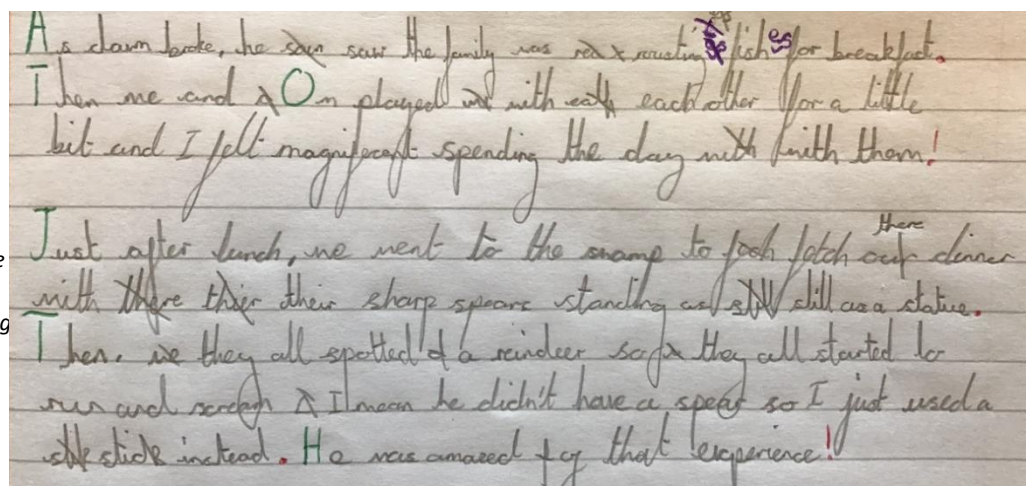 As dawn broke, he saw the family was roasting fishes for breakfast.
Then me and On played with each other for a little
bit and I felt magnificent spending the day with them!
there
Just after lunch, we went to the swamp to fetch dinner
with their sharp spears standing as still as a statue.
Then. they all spotted a reindeer so they all started to
run and scream I mean he didn't have a spear so I just used a
stick instead. He was amazed by that experience!